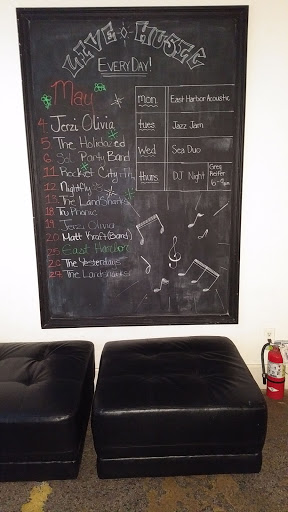 LIVE MUSIC
EVERYDAY!
May
4 Jerzi Olivia
5 The
6 Sol Party Band
11 Rocket City
12 Nightfly
13 The LandSharks
18 Phonic
19 Jerzi Olivia
20 Matt Kraft (Band)
East Harbor
The Yesterdays
The Landsharks
Mon East Harbor Acoustic
tues Jazz Jam
Wed Sea Duo
thurs DJ Night Greg
6-9pm